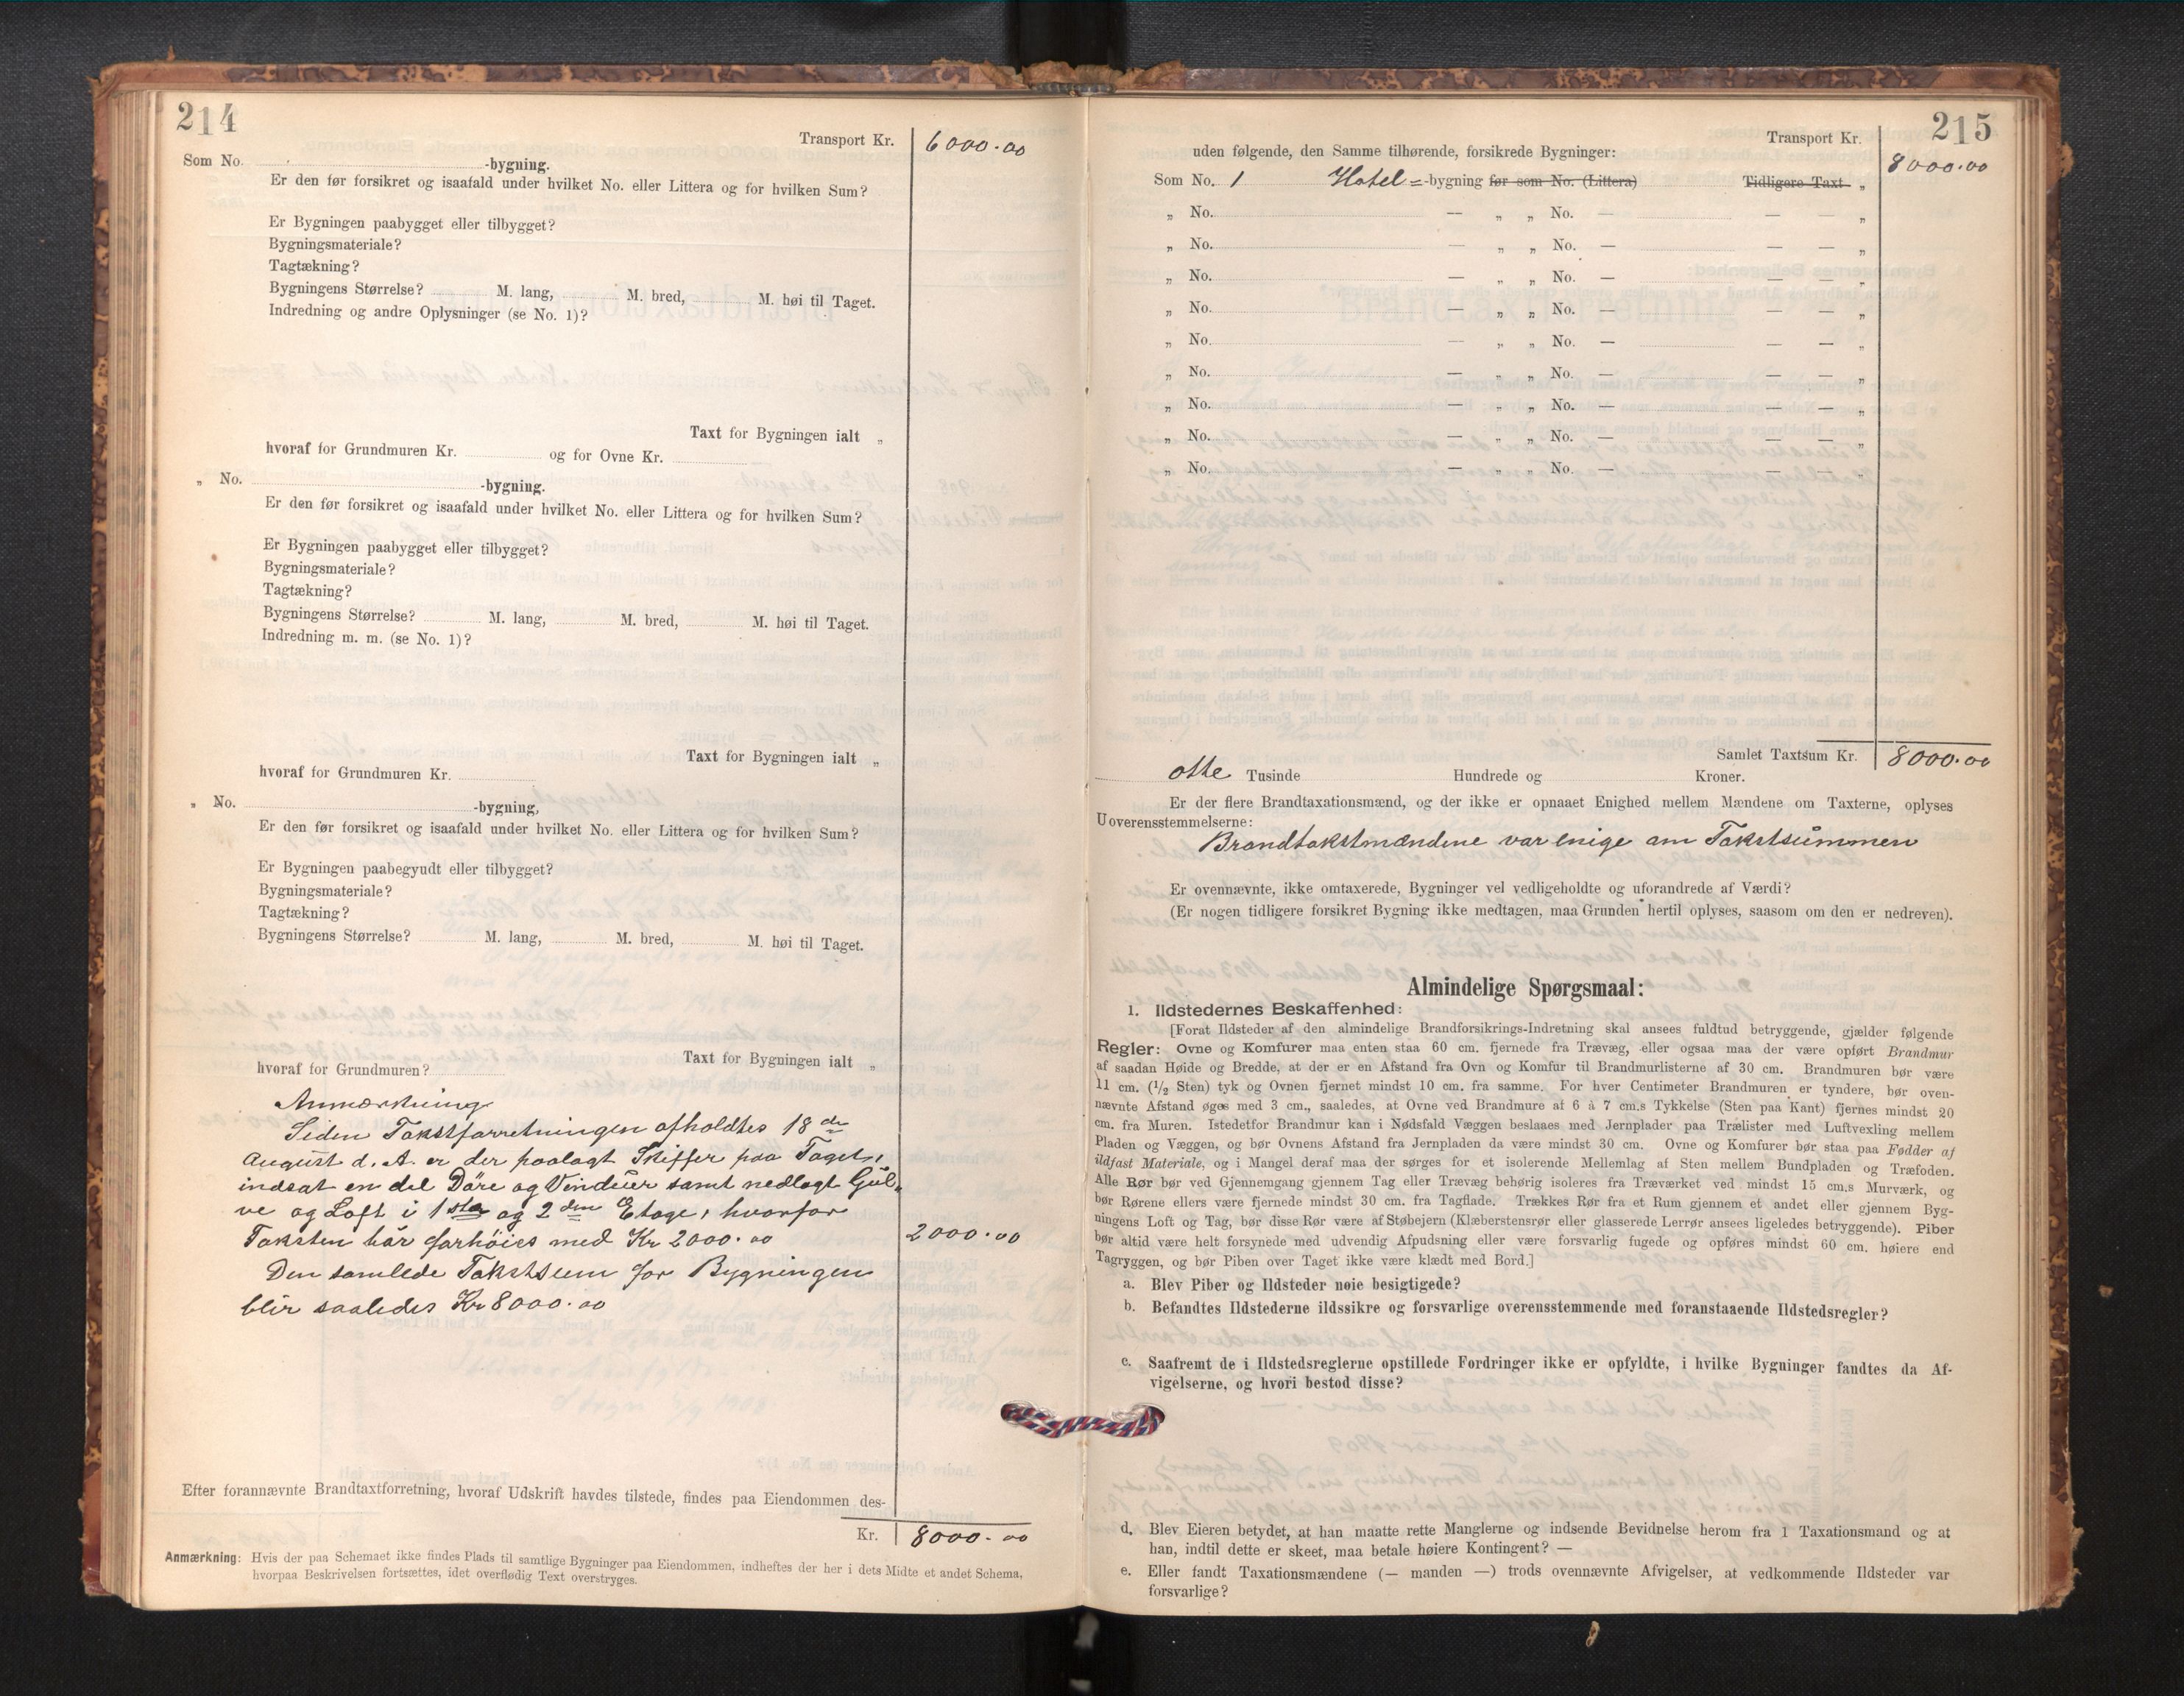 214
Transport Kr. 6000.00
Som No. -bygning.
Er den før forsikret og isaafald under hvilket No. eller Littera og for hvilken Sum?
Er Bygningen paabygget eller tilbygget?
Bygningsmateriale?
Tagtækning?
Bygningens Størrelse? M. lang, M. bred, M. høi til Taget.
Indredning og andre Oplysninger (se No. 1)?
Taxt for Bygningen ialt „
hvoraf for Grundmuren Kr. og for Ovne Kr.
„ No. -bygning.
Er den før forsikret og isaafald under hvilket No. eller Littera og for hvilken Sum?
Er Bygningen paabygget eller tilbygget?
Bygningsmateriale?
Tagtækning?
Bygningens Størrelse? M. lang, M. bred, M. høi til Taget.
Indredning m. m. (se No. 1)?
Taxt for Bygningen ialt „
hvoraf for Grundmuren Kr.
„ No. -bygning,
Er den før forsikret og isaafald under hvilket No. eller Littera og for hvilken Sum?
Er Bygningen paabegyudt eller tilbygget?
Bygningsmateriale?
Tagtækning?
Bygningens Størrelse? M. lang, M. bred, M. høi til Taget.
Taxt for Bygningen ialt „
hvoraf for Grundmuren?
Anmærkning
Siden Takstforretningen afholdtes 18de
August d. A. er der paalagt Skiffer paa Taget,
indsat en del Döre og Vinduer samt nedlagt Gul-
ve og Loft i 1ste og 2den Etage, hvorfor
Taksten bör forhöies med Kr 2000.00 2000.00
Den samlede Takstsum for Bygningen
blir saaledes Kr 8000.00
Efter forannævnte Brandtaxtforretning, hvoraf Udskrift havdes tilstede, findes paa Eiendommen des-
Kr. 8000.00
Anmærkning: Hvis der paa Schemaet ikke findes Plads til samtlige Bygninger paa Eiendommen, indheftes der her i dets Midte et andet Schema,
hvorpaa Beskrivelsen fortsættes, idet overflødig Text overstryges.
215
Transport Kr. 8000.00
uden følgende, den Samme tilhørende, forsikrede Bygninger:
Som No. 1 Hotel=-bygning før som No. (Littera) Tidligere Taxt „
„ No. — „ „ No. — — — „
„ No. — „ „ No. — — — „
„ No. — „ „ No. — — — „
„ No. — „ „ No. — — — „
„ No. — „ „ No. — — — „
„ No. — „ „ No. — — — „
„ No. — „ „ No. — — — „
„ No. — „ „ No. — — — „
„ No. — „ „ No. — — — „
Samlet Taxtsum Kr. 8000.00
otte Tusinde Hundrede og Kroner.
Er der flere Brandtaxationsmænd, og der ikke er opnaaet Enighed mellem Mændene om Taxterne, oplyses
Uoverensstemmelserne:
Brandtakstmændene var enige om Takstsummen
Er ovennævnte, ikke omtaxerede, Bygninger vel vedligeholdte og uforandrede af Værdi?
(Er nogen tidligere forsikret Bygning ikke medtagen, maa Grunden hertil oplyses, saasom om den er nedreven).
Almindelige Spørgsmaal:
1. Ildstedernes Beskaffenhed:
[Forat Ildsteder af den almindelige Brandforsikrings-Indretning skal ansees fuldtud betryggende, gjælder følgende
Regler: Ovne og Komfurer maa enten staa 60 cm. fjernede fra Trævæg, eller ogsaa maa der være opført Brandmur
af saadan Høide og Bredde, at der er en Afstand fra Ovn og Komfur til Brandmurlisterne af 30 cm. Brandmuren bør være
11 cm. (1/2 Sten) tyk og Ovnen fjernet mindst 10 cm. fra samme. For hver Centimeter Brandmuren er tyndere, bør oven-
nævnte Afstand øges med 3 cm., saaledes, at Ovne ved Brandmure af 6 à 7 cm.s Tykkelse (Sten paa Kant) fjernes mindst 20
cm. fra Muren. Istedetfor Brandmur kan i Nødsfald Væggen beslaaes med Jernplader paa Trælister med Luftvexling mellem
Pladen og Væggen, og bør Ovnens Afstand fra Jernpladen da være mindst 30 cm. Ovne og Komfurer bør staa paa Fødder af
ildfast Materiale, og i Mangel deraf maa der sørges for et isolerende Mellemlag af Sten mellem Bundpladen og Træfoden.
Alle Rør bør ved Gjennemgang gjennem Tag eller Trævæg behørig isoleres fra Træværket ved mindst 15 cm.s Murværk, og
bør Rørene ellers være fjernede mindst 30 cm. fra Tagflade. Trækkes Rør fra et Rum gjennem et andet eller gjennem Byg-
ningens Loft og Tag, bør disse Rør være af Støbejern (Klæberstensrør eller glasserede Lerrør ansees ligeledes betryggende). Piber
bør altid være helt forsynede med udvendig Afpudsning eller være forsvarlig fugede og opføres mindst 60 cm. høiere end
Tagryggen, og bør Piben over Taget ikke være klædt med Bord.]
a. Blev Piber og Ildsteder nøie besigtigede?
b. Befandtes Ildstederne ildssikre og forsvarlige overensstemmende med foranstaaende Ildstedsregler?
c. Saafremt de i Ildstedsreglerne opstillede Fordringer ikke er opfyldte, i hvilke Bygninger fandtes da Af-
vigelserne, og hvori bestod disse?
d. Blev Eieren betydet, at han maatte rette Manglerne og indsende Bevidnelse herom fra 1 Taxationsmand og at
han, indtil dette er skeet, maa betale høiere Kontingent? —
e. Eller fandt Taxationsmændene (— manden —) trods ovennævnte Afvigelser, at vedkommende Ildsteder var
forsvarlige?